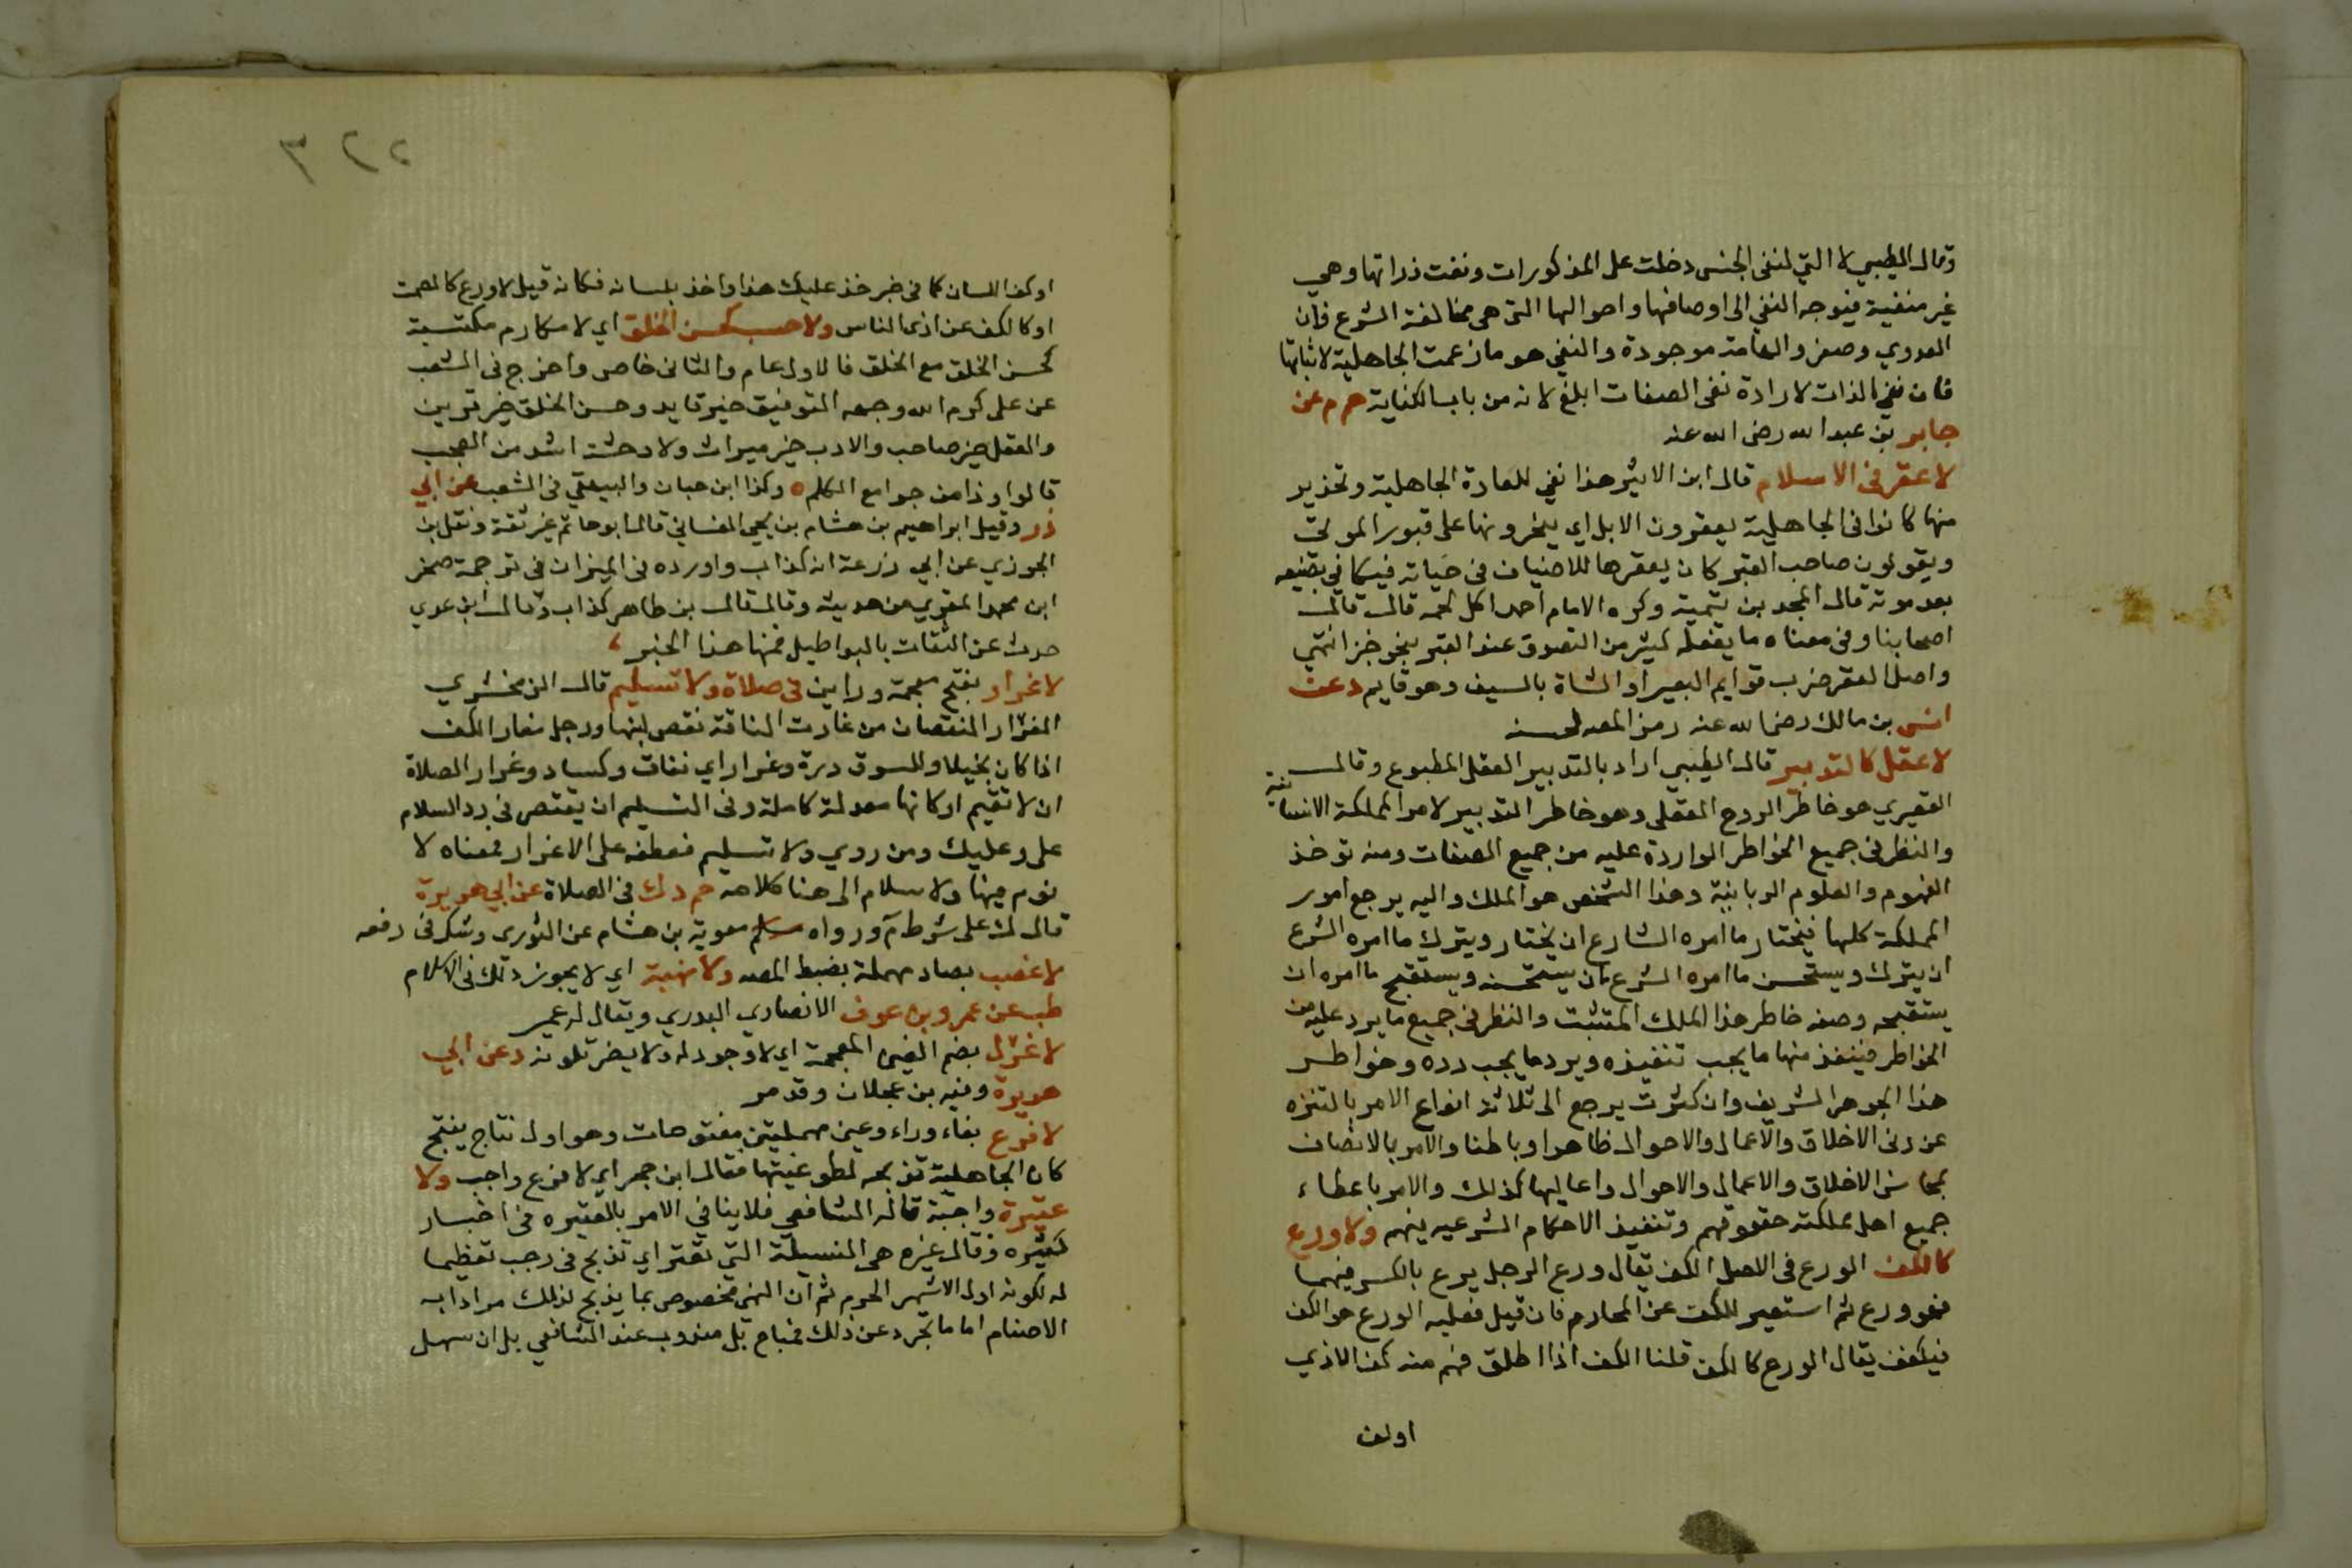 وقال الطيبي لا التي لنفي الجنس دخلت على المذكورات ونفت ذواتها وهي
غير منفية فيتوجه النفي الى اوصافها واحوالها التي هي مخالفة الشرع فان
العدوي وصفر والهامة موجودة والنفي هو ما زعمت الجاهلية لاثباتها
فان نفي الذات لارادة نفي الصفات ابلغ لانه من باب الكناية حم م عن
جابر بن عبد الله رضى الله عنه
لا عقر في الاسلام قال ابن الاثير هذا نفي للعادة الجاهلية وتحذير
منها كانوا في الجاهلية يعقرون الابل اي ينحرونها على قبور الموتى
ويقولون صاحب القبر كان يعقرها للاضياف في حياته فيكافي بصنيعه
بعد موته قال المجد بن تيمية وكره الامام احمد اكل لحمه قال قال
اصحابنا وفي معناه ما يفعله كثير من التصدق عند القبر بنحو خبز انتهى
واصل العقر ضرب قوايم البعير او الشاة بالسيف وهو قايم د عن
انس بن مالك رضى الله عنه رمز المص لحسنه
لا عقل كالتدبير قال الطيبي اراد بالتدبير العقل المطبوع وقال
القيصري هو خاطر الروح العقلي وهو خاطر التدبير لامر المملكة الانسانية
والنظر في جميع الخواطر الواردة عليه من جميع الصفات ومنه توخذ
الفهوم والعلوم الربانية وهذا الشخص هو الملك واليه يرجع امور
المملكة كلها فيختار ما امره الشارع ان يختار ويترك ما امره الشرع
ان يترك ويستحسن ما امره الشرع ان يستحسنه ويستقبح ما امره ان
يستقبحه وصفه خاطر هذا الملك التثبت والنظر في جميع ما يرد عليه من
الخواطر فينفذ منها ما يجب تنفيذه ويرد ما يجب رده وخواطر
هذا الجوهر الشريف وان كثرت يرجع الى ثلاثة انواع الامر بالتنزه
عن دني الاخلاق والاعمال والاحوال ظاهرا وباطنا والامر بالاتصاف
بمحاسن الاخلاق والاعمال والاحوال واعاليها كذلك والامر باعطاء
جميع اهل مملكته حقوقهم وتنفيذ الاحكام الشرعيه بينهم ولا ورع
كالكف الورع في الاصل الكف يقال ورع الرجل يرع بالكسر فيهما
فهو ورع ثم استعير للكف عن المحارم فان قيل فعليه الورع هو الكف
فكيف يقال الورع كالكف قلنا الكف اذا اطلق فهم منه كف الاذي
اوكف
٣٢٢
اوكف اللسان كما في خبر خذ عليك هذا واخذ بلسانه فكانه قيل لا ورع كالصمت
او كالكف عن اذى الناس ولا حسب كحسن الخلق اي لا مكارم مكتسبة
كحسن الخلق مع الخلق فالاول عام والثاني خاص واخرج في الشعب
عن على كرم الله وجهه التوفيق خير قايد وحسن الخلق خير قرين
والعقل خير صاحب والادب خير ميراث ولا وحشة اشد من العجب
قالوا وذا من جوامع الكلم ه وكذا ابن حبان والبيهقي في الشعب عن ابي
ذر وفيه ابراهيم بن هشام بن يحيى الغساني قال ابو حاتم غير ثقة ونقل بن
الجوزي عن ابي زرعة انه كذاب واورده في الميزان في ترجمة صخر
ابن محمد المنقري من حديثه وقال قال بن طاهر كذاب وقال ابن عدي
حدث عن الثقات بالبواطيل فمنها هذا الخبر
لا غرار بفتح معجمة وراين في صلاة ولا تسليم قال الزمخشري
الغرار النقصان من غارت الناقة نقص لبنها ورجل مغار الكف
اذا كان بخيلا وللسوق درة وغرار اي نفاق وكساد وغرار الصلاة
ان لا تقيم اركانها معدلة كاملة وفي التسليم ان يقتص في رد السلام
على وعليك ومن روي ولا تسليم فعطفه على الاغرار فمعناه لا
نوم فيها ولا سلام الى هنا كلامه حم د ك في الصلاة عن ابي هريرة
قال ك على شرط م ورواه معوية بن هشام عن الثورى وشك في رفعه
لا غصب بصاد مهملة بضبط المص ولا نهبة اي لا يجوز ذلك في الاسلام
طب عن عمرو بن عوف الانصاري البدري ويقال له عمير
لا غول بضم الغين المعجمة اي لا وجود له ولا يضر تلونه د عن ابي
هريرة وفيه بن عجلان وقد مر
لا فرع بفاء وراء وعين مهملتين مفتوحات وهو اول نتاج ينتج
كان الجاهلية تذبحه لطوغيتها فقال ابن حجر اي لا فرع واجب ولا
عتيرة واجبة قاله الشافعي فلا ينافي الامر بالعتيره في اخبار
كثيره وقال غيره هي النسيكة التي تعتر اي تذبح في رجب تعظيما
له لكونه اول الاشهر الحرم ثم ان النهي مخصوص بما يذبح لذلك مرادا به
الاصنام اما ما تجرد عن ذلك فمباح بل مندوب عند الشافعي بل ان سهل